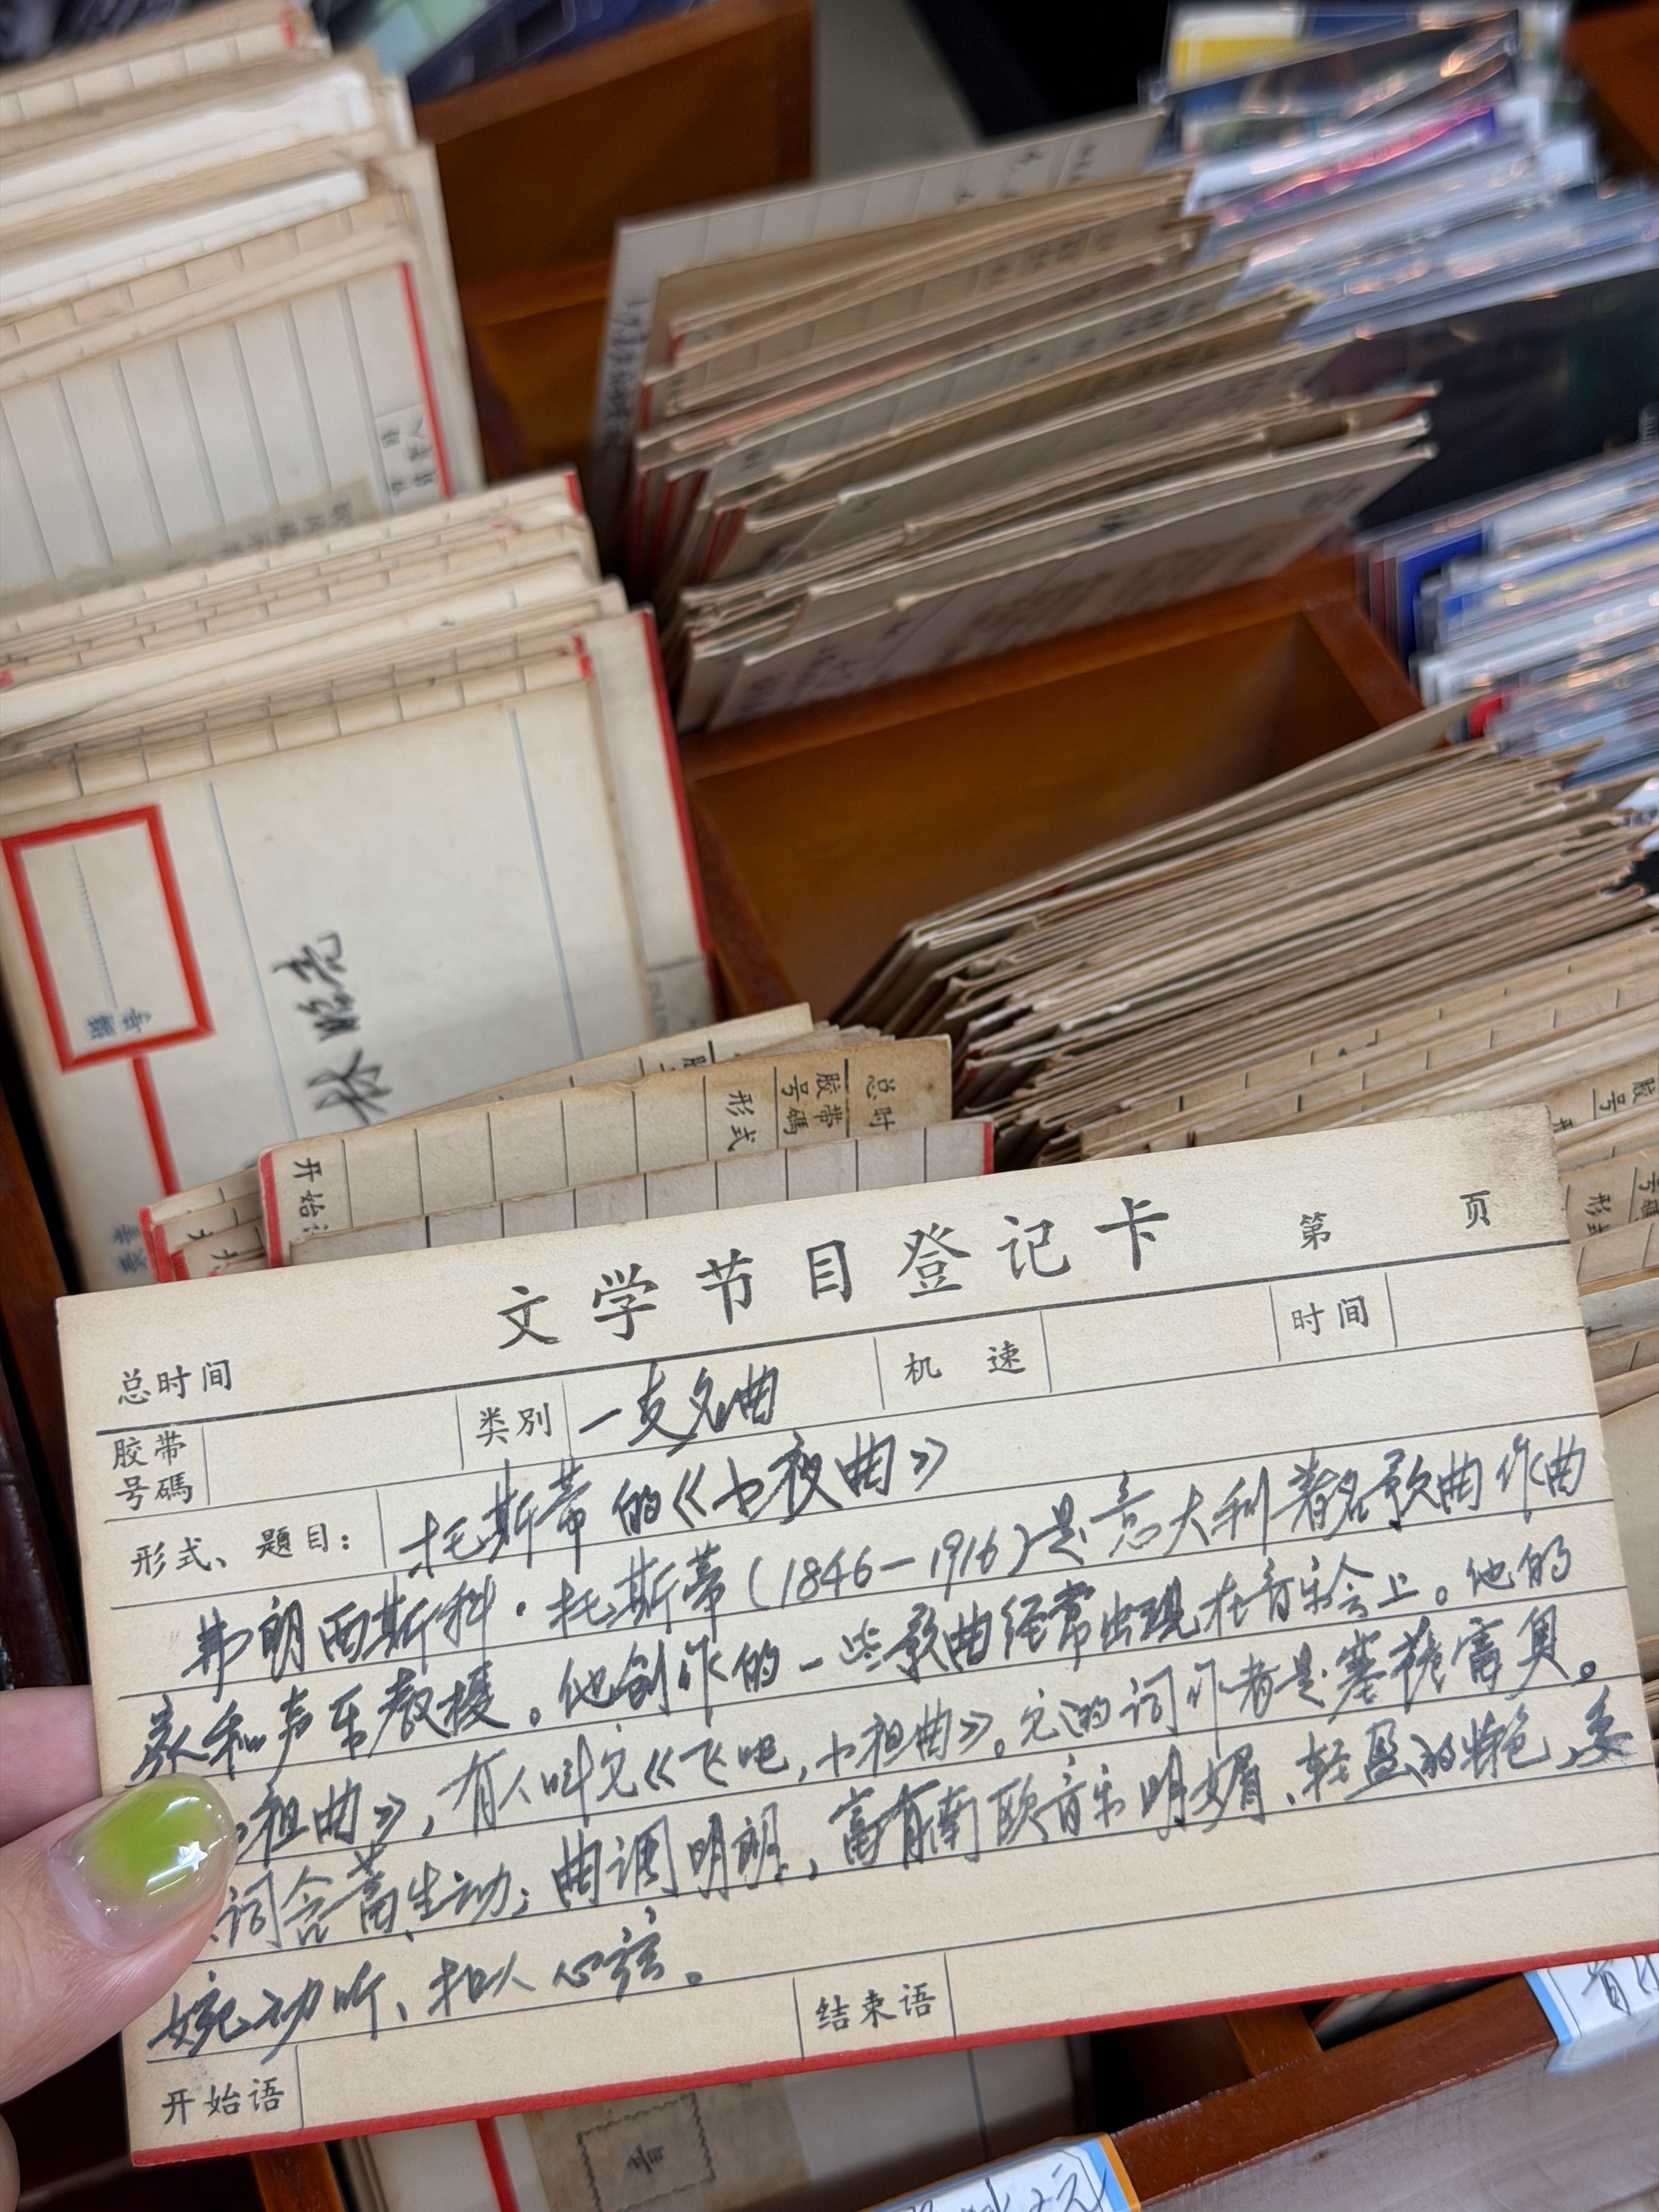 林昭亮
编号
总时
胶带
号碼
形式
开始
文学节目登记卡
第 页
总时间
胶带
号碼
类别
一支名曲
机 速
时间
形式、題目:
托斯蒂的《小夜曲》
弗朗西斯科·托斯蒂(1846—1916)是意大利著名歌曲作曲
家和声乐教授。他创作的一些歌曲经常出现在音乐会上。他的
祖曲》,有人叫它《飞吧,小祖曲》。它的词作者是塞 富奥。
词含蓄、生动;曲调明朗,富有南欧音乐明媚、轻盈的特色,委
婉动听、扣人心弦。
开始语
结束语